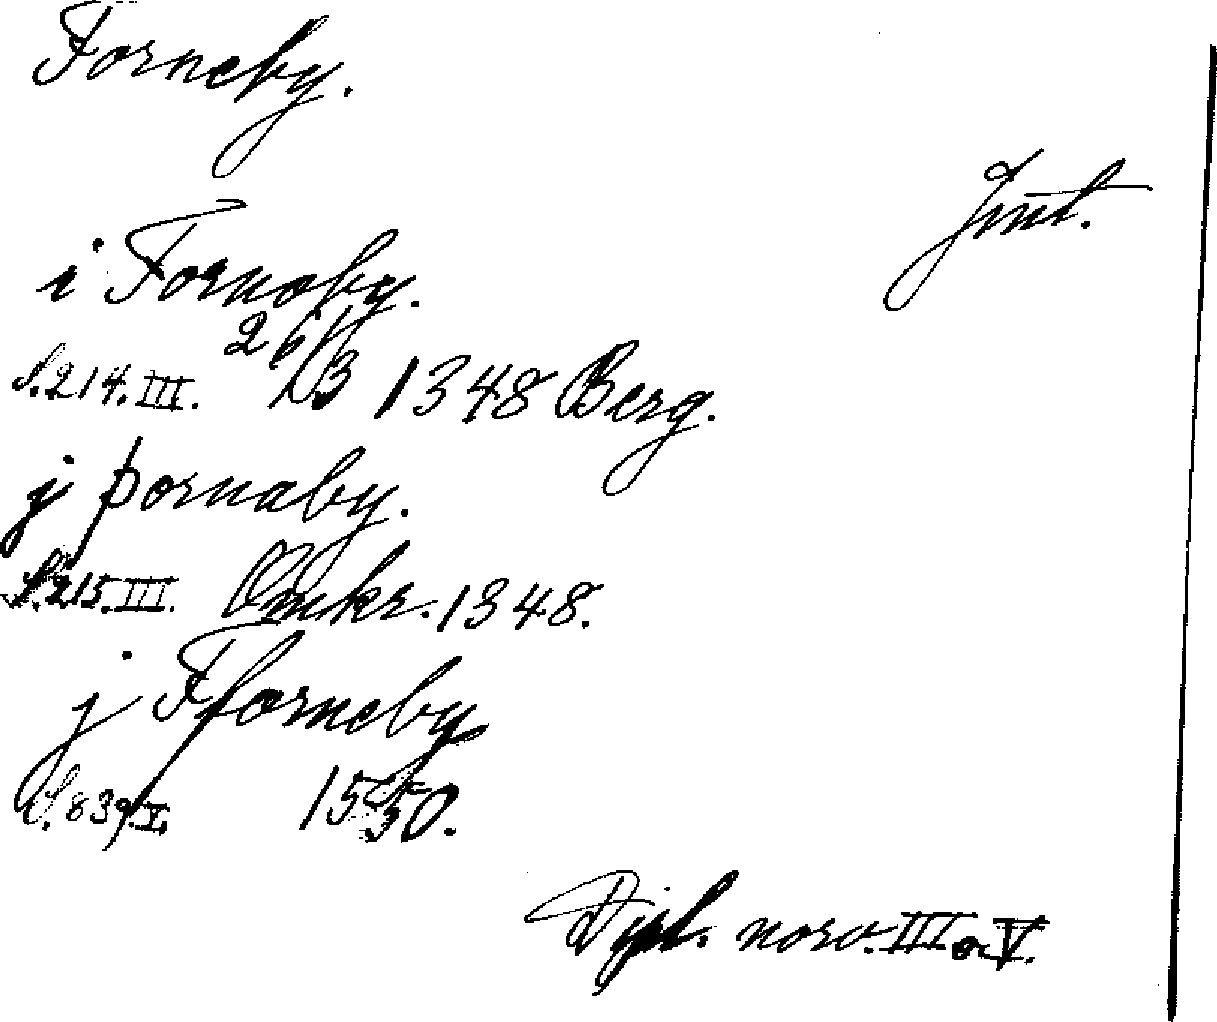 Forneby.
Jmt.
i Fornaby.
S.214.III. 26/3 1348 Berg.
j þornaby.
S.215.III. Omkr. 1348.
j Fforneby
S.839.V. 1550.
Dipl. norv. III o. V.